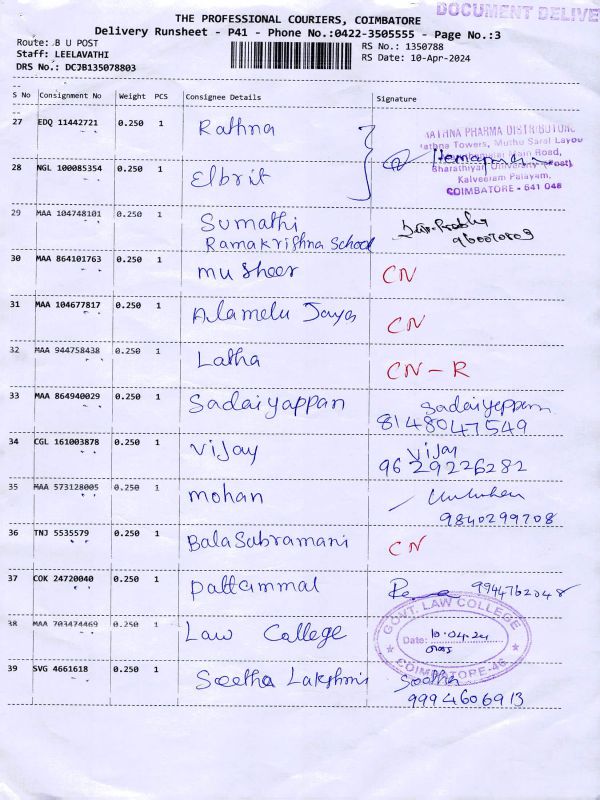 DOCUMENT DELIVE
THE PROFESSIONAL COURIERS, COIMBATORE
Delivery Runsheet - P41 - Phone No.:0422-3505555 - Page No.:3
Route: B U POST
Staff: LEELAVATHI
DRS No.: DCJB135078803
RS No.: 1350788
RS Date: 10-Apr-2024
S No Consignment No Weight PCS Consignee Details Signature
27 EDQ 11442721 0.250 1 Rathna
RATHNA PHARMA DISTRIBUTORS
Rathna Towers, Muthu Saral Layou
Main Road,
Bharathiyar University (Post)
Kalveeram Palayam,
COIMBATORE - 641 046
28 NGL 100085354 0.250 1 Elbrit
29 MAA 104748101 0.250 1 Sumathi
Ramakrishna School
30 MAA 864101763 0.250 1 musheer CN
31 MAA 104677817 0.250 1 Alamelu Jaya CN
32 MAA 944758438 0.250 1 Latha CN - R
33 MAA 864940029 0.250 1 Sadaiyappan Sadaiyappan
8148047549
34 CGL 161003878 0.250 1 Vijay Vijay
9629226282
35 MAA 573128005 0.250 1 mohan
9840299708
36 TNJ 5535579 0.250 1 BalaSubramani CN
37 COK 24720040 0.250 1 Pattammal 9944762048
38 MAA 703474469 0.250 1 Law College
GOVT. LAW COLLEGE
Date: 10.04.24
COIMBATORE-46
39 SVG 4661618 0.250 1 Seetha Lakshmi Seetha
9994606913